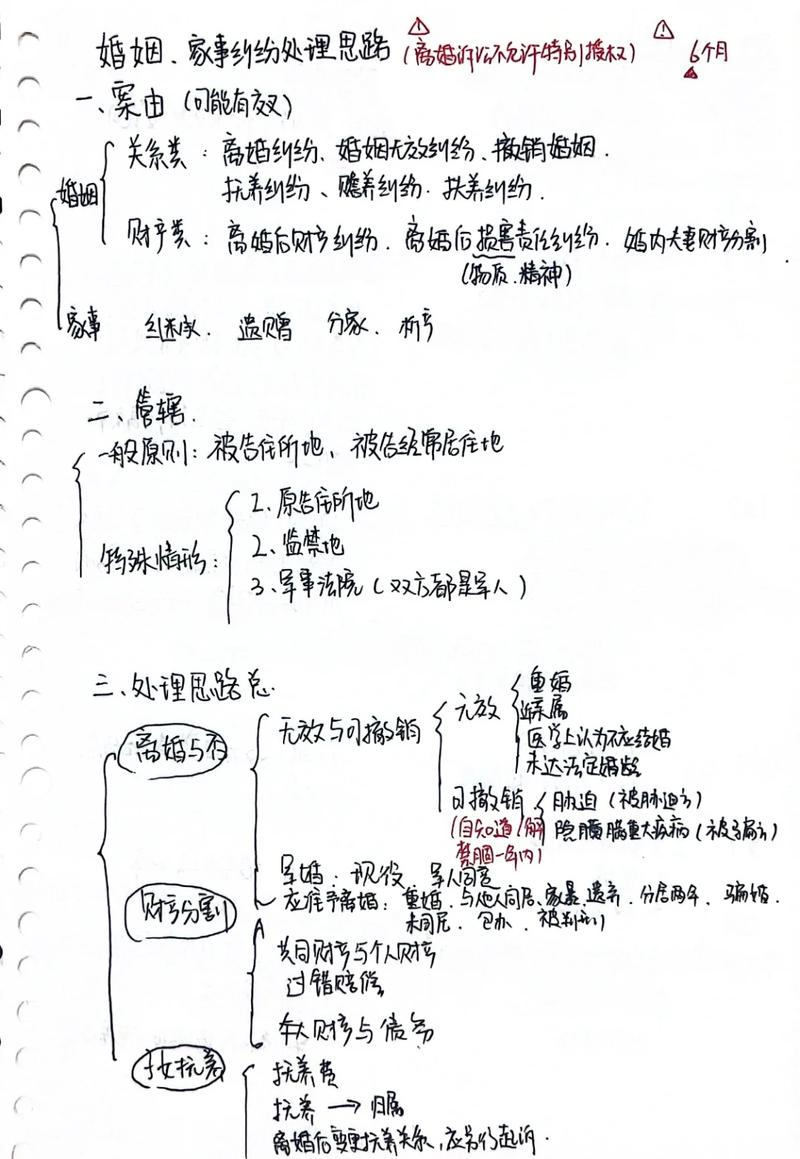 婚姻、家事纠纷处理思路 (离婚诉讼不允许特别授权) 6个月
一、案由 (可能有效)
婚姻
关系类：离婚纠纷、婚姻无效纠纷、撤销婚姻.
抚养纠纷、赡养纠纷.扶养纠纷.
财产类：离婚后财产纠纷.离婚后损害责任纠纷.婚内夫妻财产分割
(物质.精神)
家事 继承. 遗赠 分家. 析产
二、管辖.
一般原则：被告住所地、被告经常居住地
特殊情形：
1.原告住所地
2.监禁地
3.军事法院(双方都是军人)
三、处理思路总.
离婚与否
无效与可撤销
无效
重婚
近亲属
医学上认为不应结婚
未达法定婚龄
可撤销
胁迫(被胁迫方)
隐瞒重大疾病(被方)
(自知道/解禁一年内)
军婚：现役 军人同意
应准予离婚：重婚.与他人同居.家暴.遗弃.分居两年.骗婚.
未同居. 包办. 被判刑
财产分割
共同财产与个人财产
过错赔偿
个人财产与债务
子女抚养
抚养费
抚养 → 归属
离婚后变更抚养关系,应另行起诉.